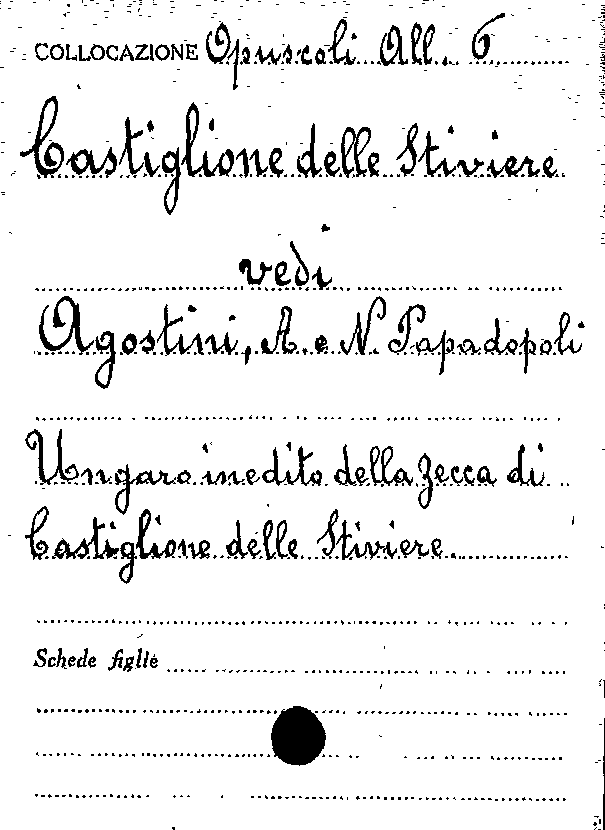 COLLOCAZIONE Opuscoli All. 6
Castiglione delle Stiviere
vedi
Agostini, A. e N. Papadopoli
Ungaro inedito della zecca di
Castiglione delle Stiviere.
Schede figlie